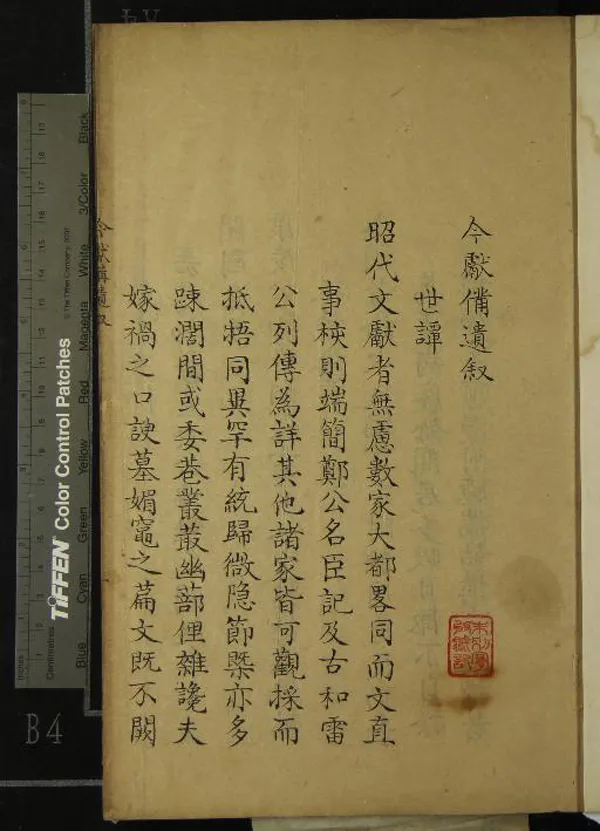 今獻備遺叙
世譚
昭代文獻者無慮數家大都畧同而文直
事核則端簡鄭公名臣記及古和雷
公列傳為詳其他諸家皆可觀採而
抵捂同異罕有統歸微隐節槩亦多
踈濶間或委巷叢菆幽蔀俚雜讒夫
嫁禍之口諛墓媚竈之篇文既不闕
今獻備遺叙
TIFFEN Color Control Patches
© The Tiffen Company, 2007
Inches
Centimetres
Blue Cyan Green Yellow Red Magenta White 3/Color Black
B4